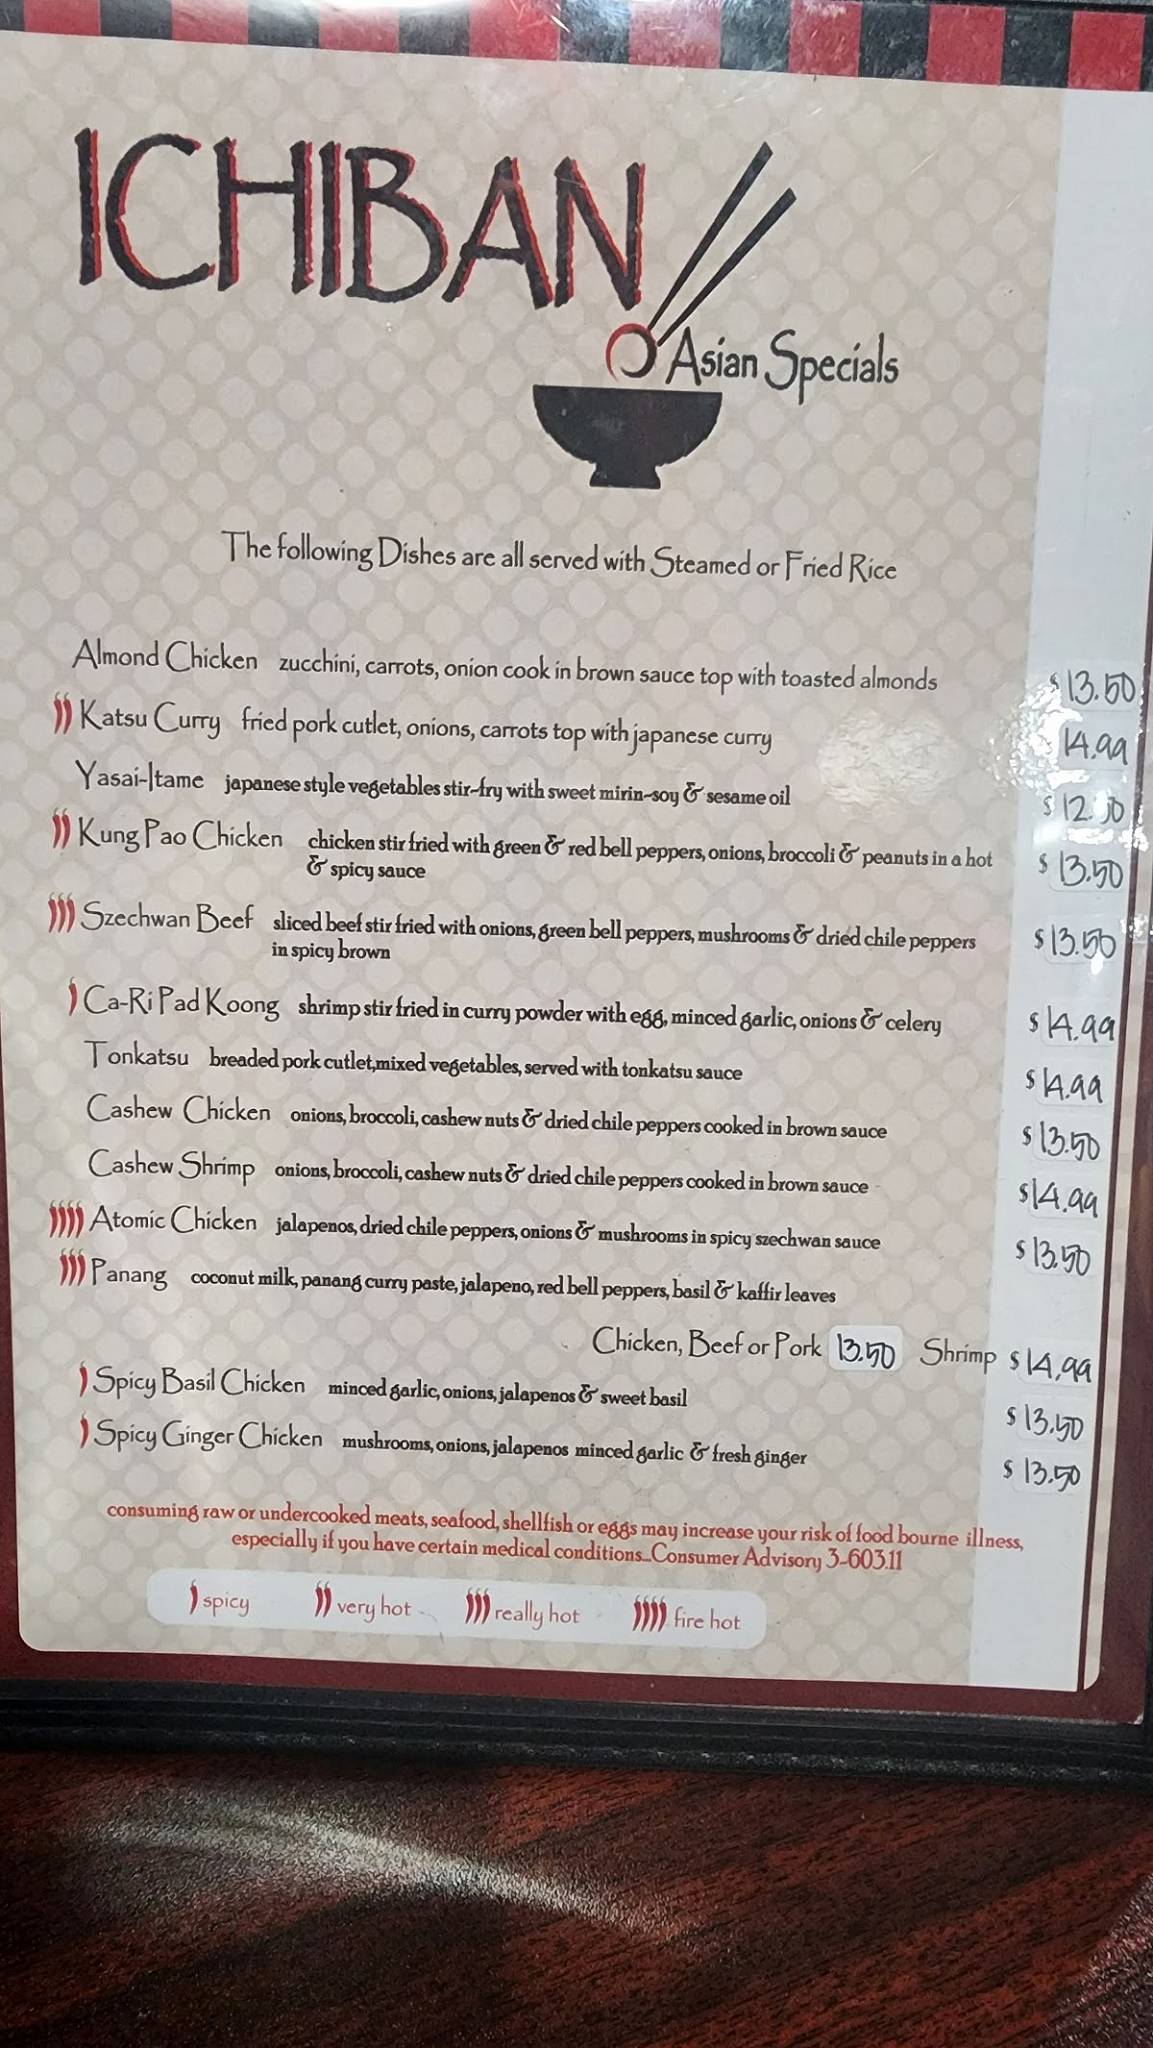 ICHIBAN
Asian Specials
The following Dishes are all served with Steamed or Fried Rice
Almond Chicken zucchini, carrots, onion cook in brown sauce top with toasted almonds $13.50
Katsu Curry fried pork cutlet, onions, carrots top with japanese curry 14.99
Yasai-Itame japanese style vegetables stir-fry with sweet mirin-soy & sesame oil
Kung Pao Chicken chicken stir fried with green & red bell peppers, onions, broccoli & peanuts in a hot $13.50
& spicy sauce
Szechwan Beef sliced beef stir fried with onions, green bell peppers, mushrooms & dried chile peppers $13.50
in spicy brown
Ca-Ri Pad Koong shrimp stir fried in curry powder with egg, minced garlic, onions & celery $14.99
Tonkatsu breaded pork cutlet,mixed vegetables, served with tonkatsu sauce $14.99
Cashew Chicken onions, broccoli, cashew nuts & dried chile peppers cooked in brown sauce $13.50
Cashew Shrimp onions, broccoli, cashew nuts & dried chile peppers cooked in brown sauce $14.99
Atomic Chicken jalapenos, dried chile peppers, onions & mushrooms in spicy szechwan sauce $13.50
Panang coconut milk, panang curry paste, jalapeno, red bell peppers, basil & kaffir leaves
Chicken, Beef or Pork 13.50 Shrimp $14,99
Spicy Basil Chicken minced garlic, onions, jalapenos & sweet basil $13.50
Spicy Ginger Chicken mushrooms, onions, jalapenos minced garlic & fresh ginger $13.50
consuming raw or undercooked meats, seafood, shellfish or eggs may increase your risk of food bourne illness,
especially if you have certain medical conditions...Consumer Advisory 3-603.11
spicy very hot really hot fire hot